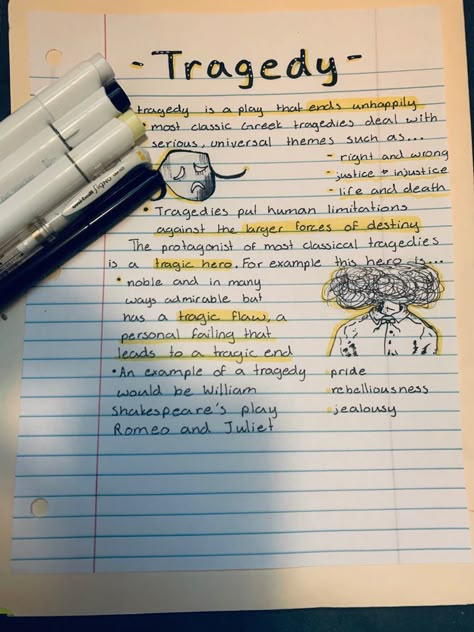 - Tragedy -
tragedy is a play that ends unhappily
• most classic Greek tragedies deal with
serious, universal themes such as...
- right and wrong
- justice + injustice
- life and death
• Tragedies put human limitations
against the larger forces of destiny
The protagonist of most classical tragedies
is a tragic hero. For example this hero is...
• noble and in many
ways admirable but
has a tragic flaw, a
personal failing that
leads to a tragic end
• An example of a tragedy
would be William
Shakespeare's play
Romeo and Juliet
pride
rebelliousness
jealousy
Signo